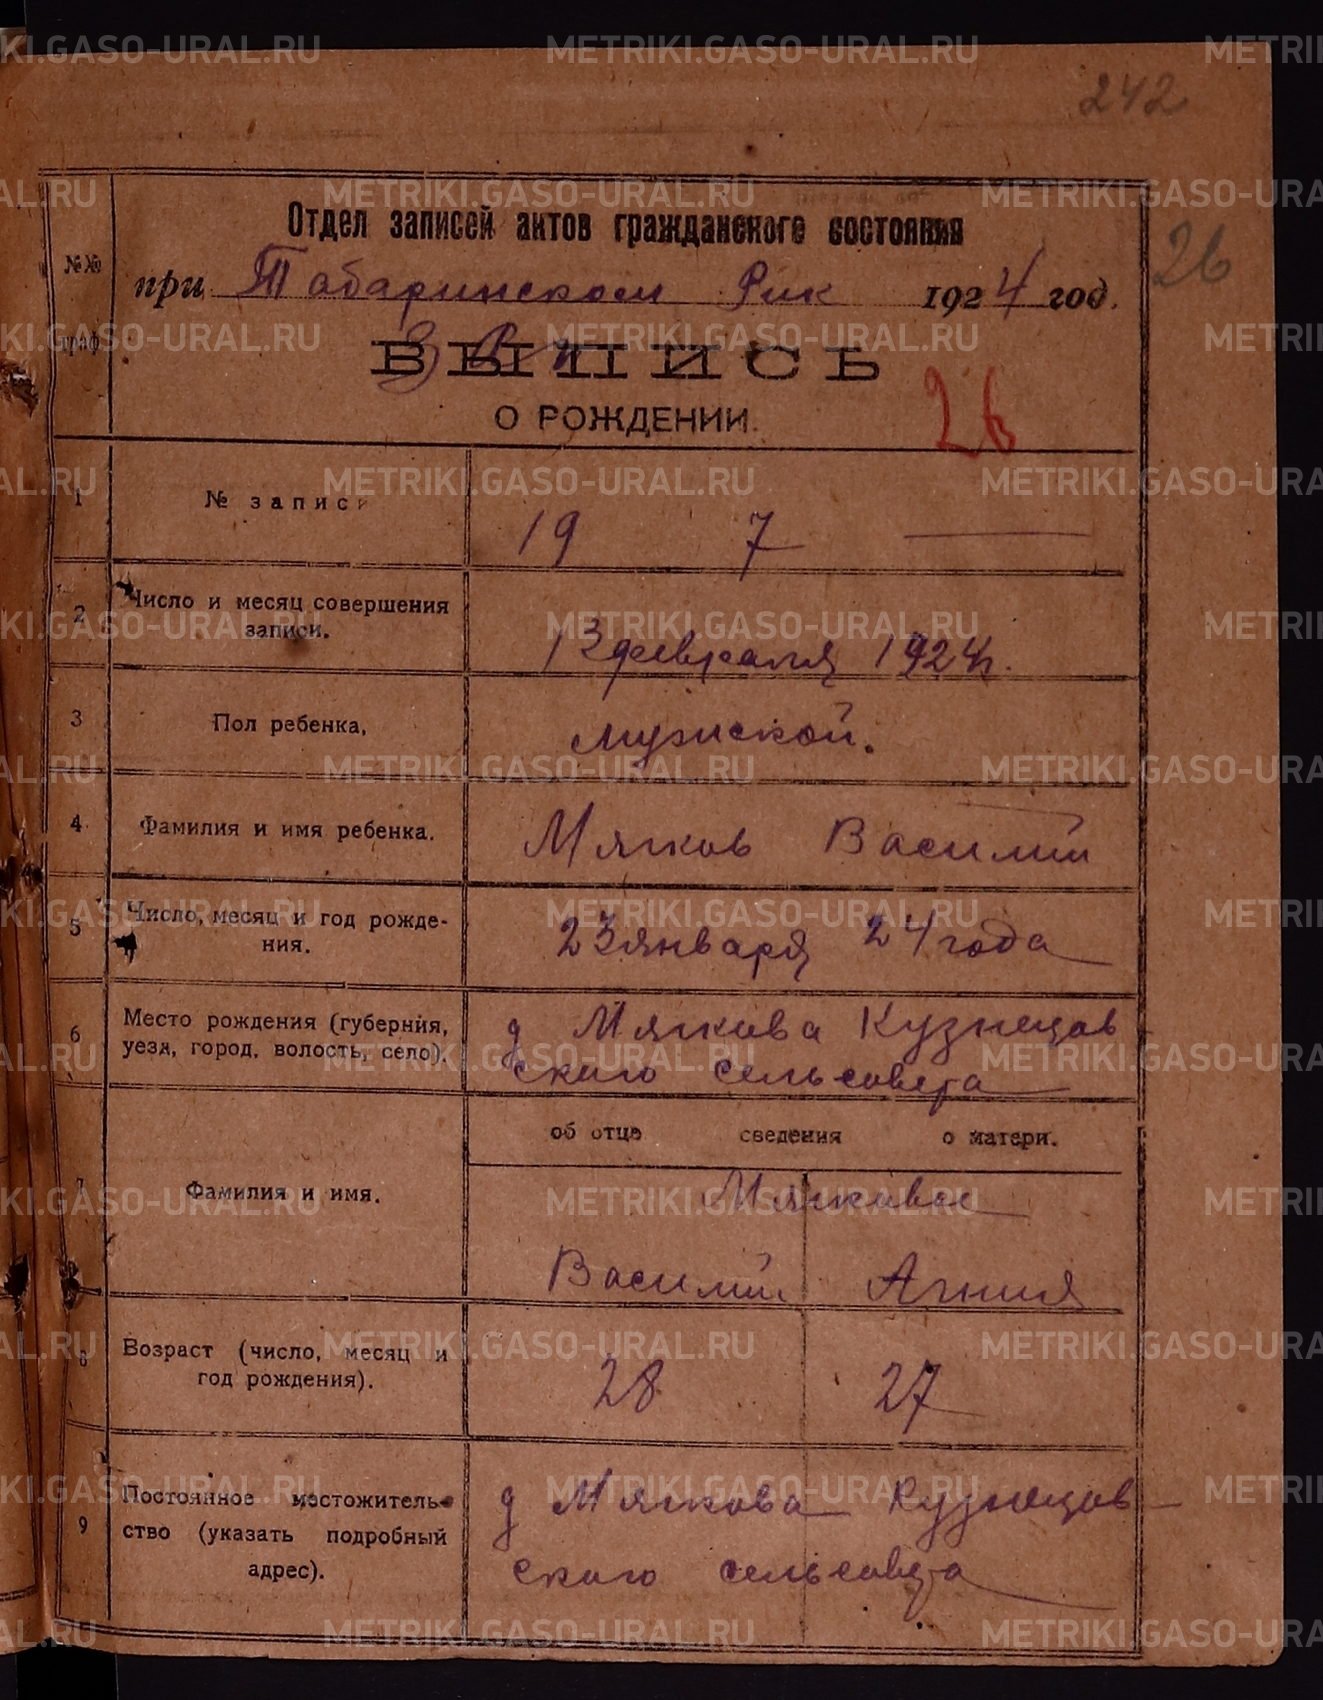 242
Отдел записей актов гражданского состояния
26
№№
граф
при Табаринском Рик 1924 год.
ВЫПИСЬ
26
О РОЖДЕНИИ.
1 № записи 19 7 —
2 Число и месяц совершения записи. 13 февраля 1924 г.
3 Пол ребенка, мужской.
4 Фамилия и имя ребенка. Мягков Василий
5 Число, месяц и год рожде-
ния. 23 января 24 года
6 Место рождения (губерния, д Мягкова Кузнецов-
уезд, город, волость, село). ского сельсовета
об отце сведения о матери.
7 Фамилия и имя. Мягковы
Василий Агния
8 Возраст (число, месяц и
год рождения). 28 27
9 Постоянное местожитель- д Мягкова Кузнецов-
ство (указать подробный ского сельсовета
адрес).
METRIKI.GASO-URAL.RU